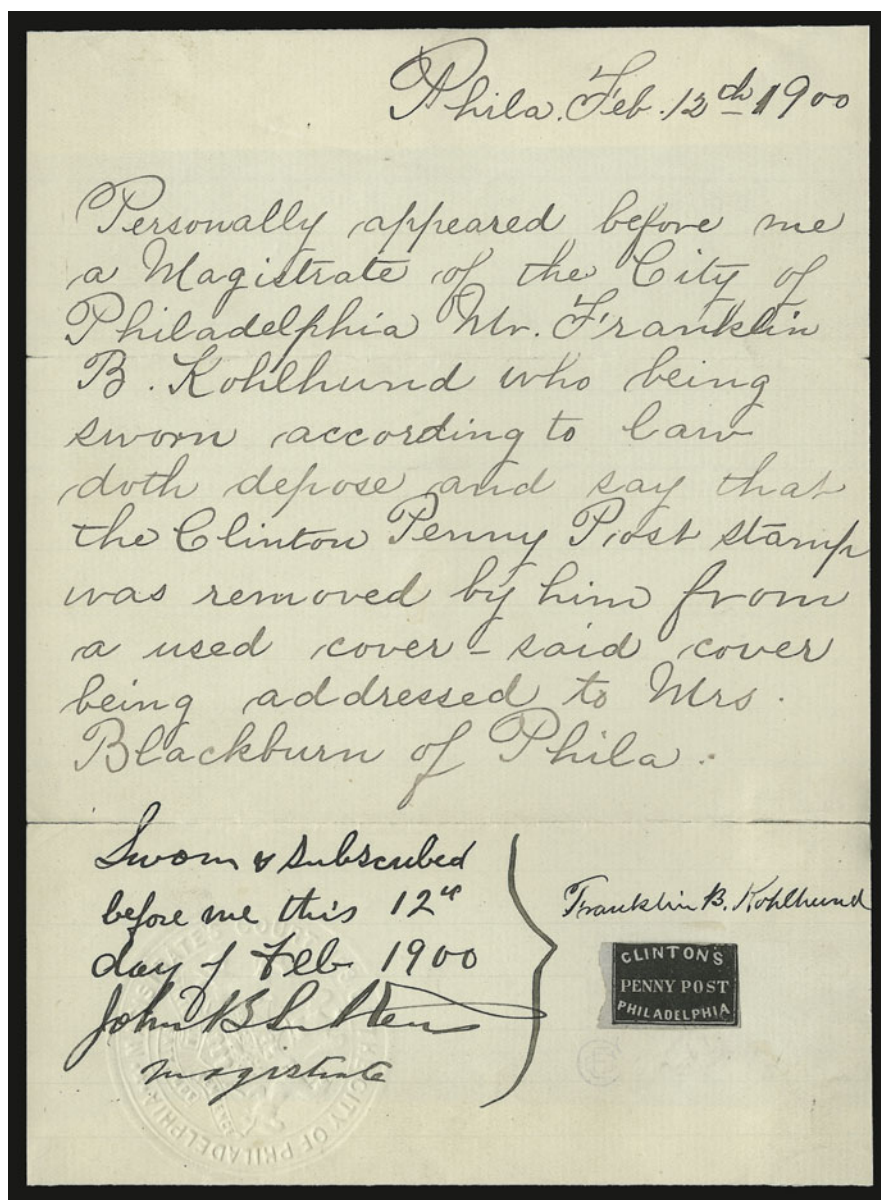 Phila. Feb. 12th 1900
Personally appeared before me
a Magistrate of the City of
Philadelphia Mr. Franklin
B. Kohlhund who being
sworn according to law
doth depose and say that
the Clinton Penny Post stamp
was removed by him from
a used cover - said cover
being addressed to Mrs.
Blackburn of Phila.
Sworn & subscribed
before me this 12th
day of Feb 1900
John B
magistrate
Franklin B. Kohlhund
CLINTON'S
PENNY POST
PHILADELPHIA
CITY OF PHILADELPHIA